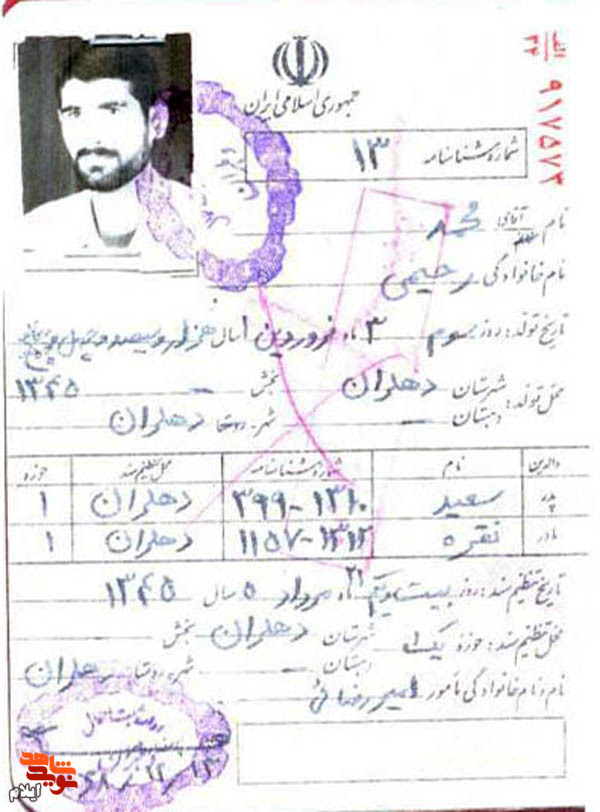 الف
۳۴
۹۱۷۵۷۳
جمهوری اسلامی ایران
شماره شناسنامه ۱۳
نام آقای محمد
نام خانوادگی رحیمی
تاریخ تولد: روز سوم ۳ ماه فروردین ۱ سال هزار و سیصد و چهل و پنج
۱۳۴۵
محل تولد: شهرستان دهلران بخش —
دهستان — شهر- روستا دهلران
والدین نام شماره شناسنامه محل تنظیم سند حوزه
پدر سعید ۱۳۱۰-۳۹۹ دهلران ۱
مادر نقره ۱۳۱۲-۱۱۵۷ دهلران ۱
تاریخ تنظیم سند: روز بیست و یکم ۲۱ ماه مرداد ۵ سال ۱۳۴۵
محل تنظیم سند: حوزه یک ۱ شهرستان دهلران بخش —
دهستان — شهر- روستا دهلران
نام و نام خانوادگی مأمور امیر رضائی
نوید شاهد
ایلام